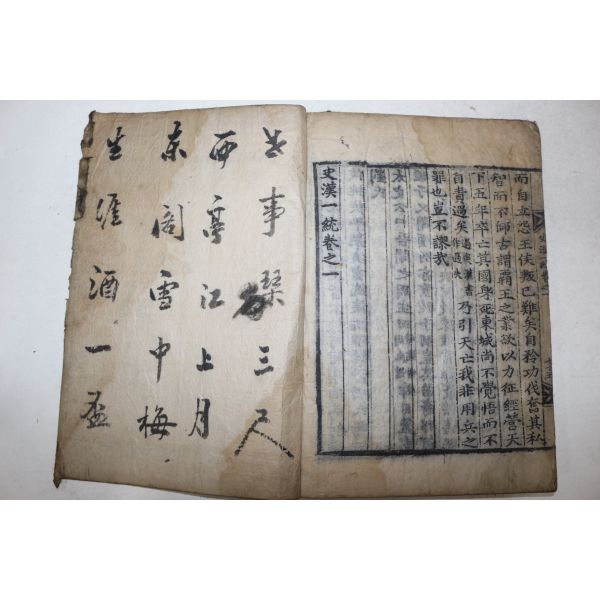 而自立怨王侯叛已難矣自矜功伐奮其私
智而不師古謂霸王之業欲以力征經營天
下五年卒亡其國身死東城尚不覺悟而不
自責過矣過矣漢書作過失乃引天亡我非用兵之
罪也豈不謬哉
史漢一統卷之一
世事琴三尺
西亭江上月
東閣雪中梅
生涯酒一盃